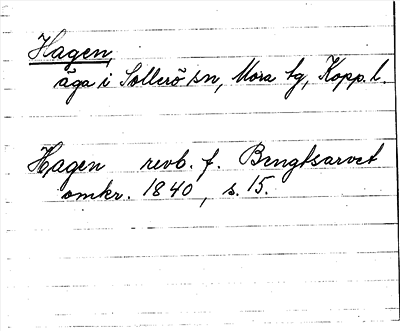 Hagen,
äga i Sollerö sn, Mora tg, Kopp. l.
Hagen revb. f. Bengtsarvet
omkr. 1840, s. 15.